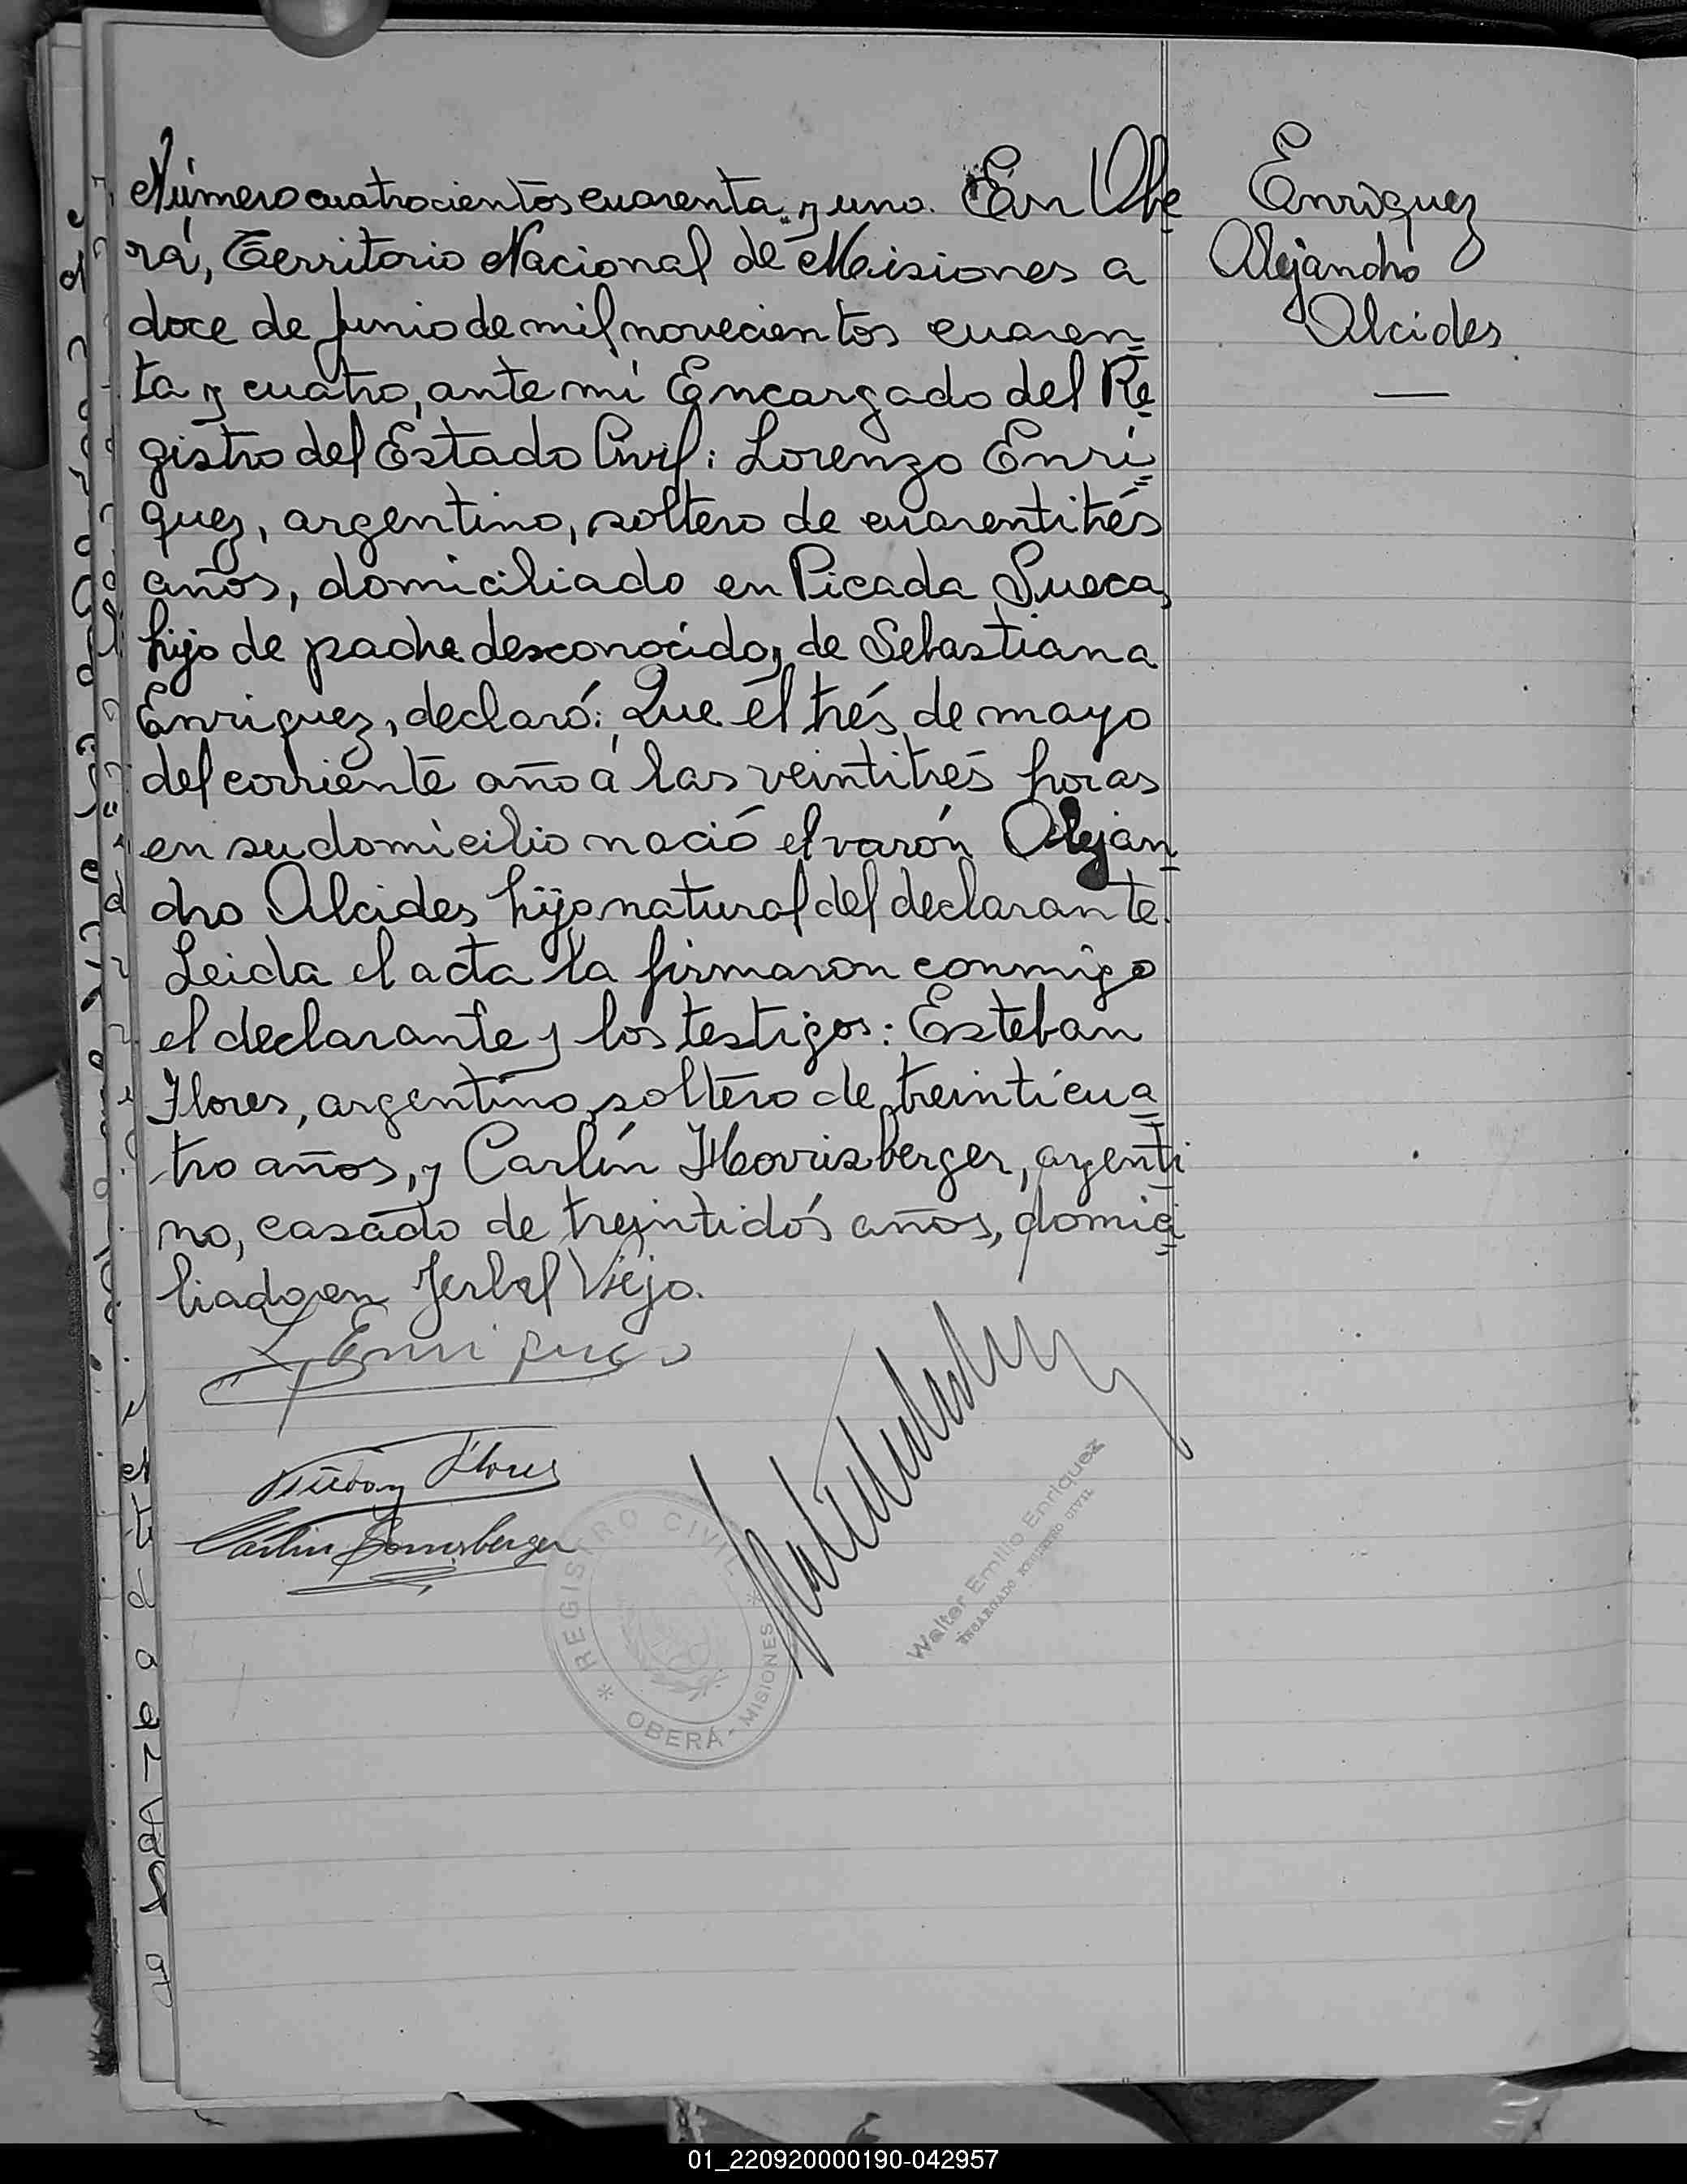 Número cuatrocientos cuarenta y uno. En Obe
rá, Territorio Nacional de Misiones a
doce de Junio de mil novecientos cuaren
ta y cuatro, ante mi Encargado del Re
gistro del Estado Civil: Lorenzo Enri
quez, argentino, soltero de cuarentitrés
años, domiciliado en Picada Sueca,
hijo de padre desconocido y de Sebastiana
Enriquez, declaró: Que el trés de mayo
del corriente año a las veintitrés horas
en su domicilio nació el varón Alejan
dro Alcides hijo natural del declarante.
Leida el acta la firmaron conmigo
el declarante y los testigos: Esteban
Flores, argentino, soltero de treinticua
tro años, y Carlín Horrisberger, argenti
no, casado de treintidós años, domici
liado en Yerbal Viejo.
Enriquez
Alejandro
Alcides
L Enriquez
Esteban Flores
Carlin Horrisberger
REGISTRO CIVIL
OBERÁ - MISIONES
Walter Emilio Enriquez
ENCARGADO REGISTRO CIVIL
01_220920000190-042957